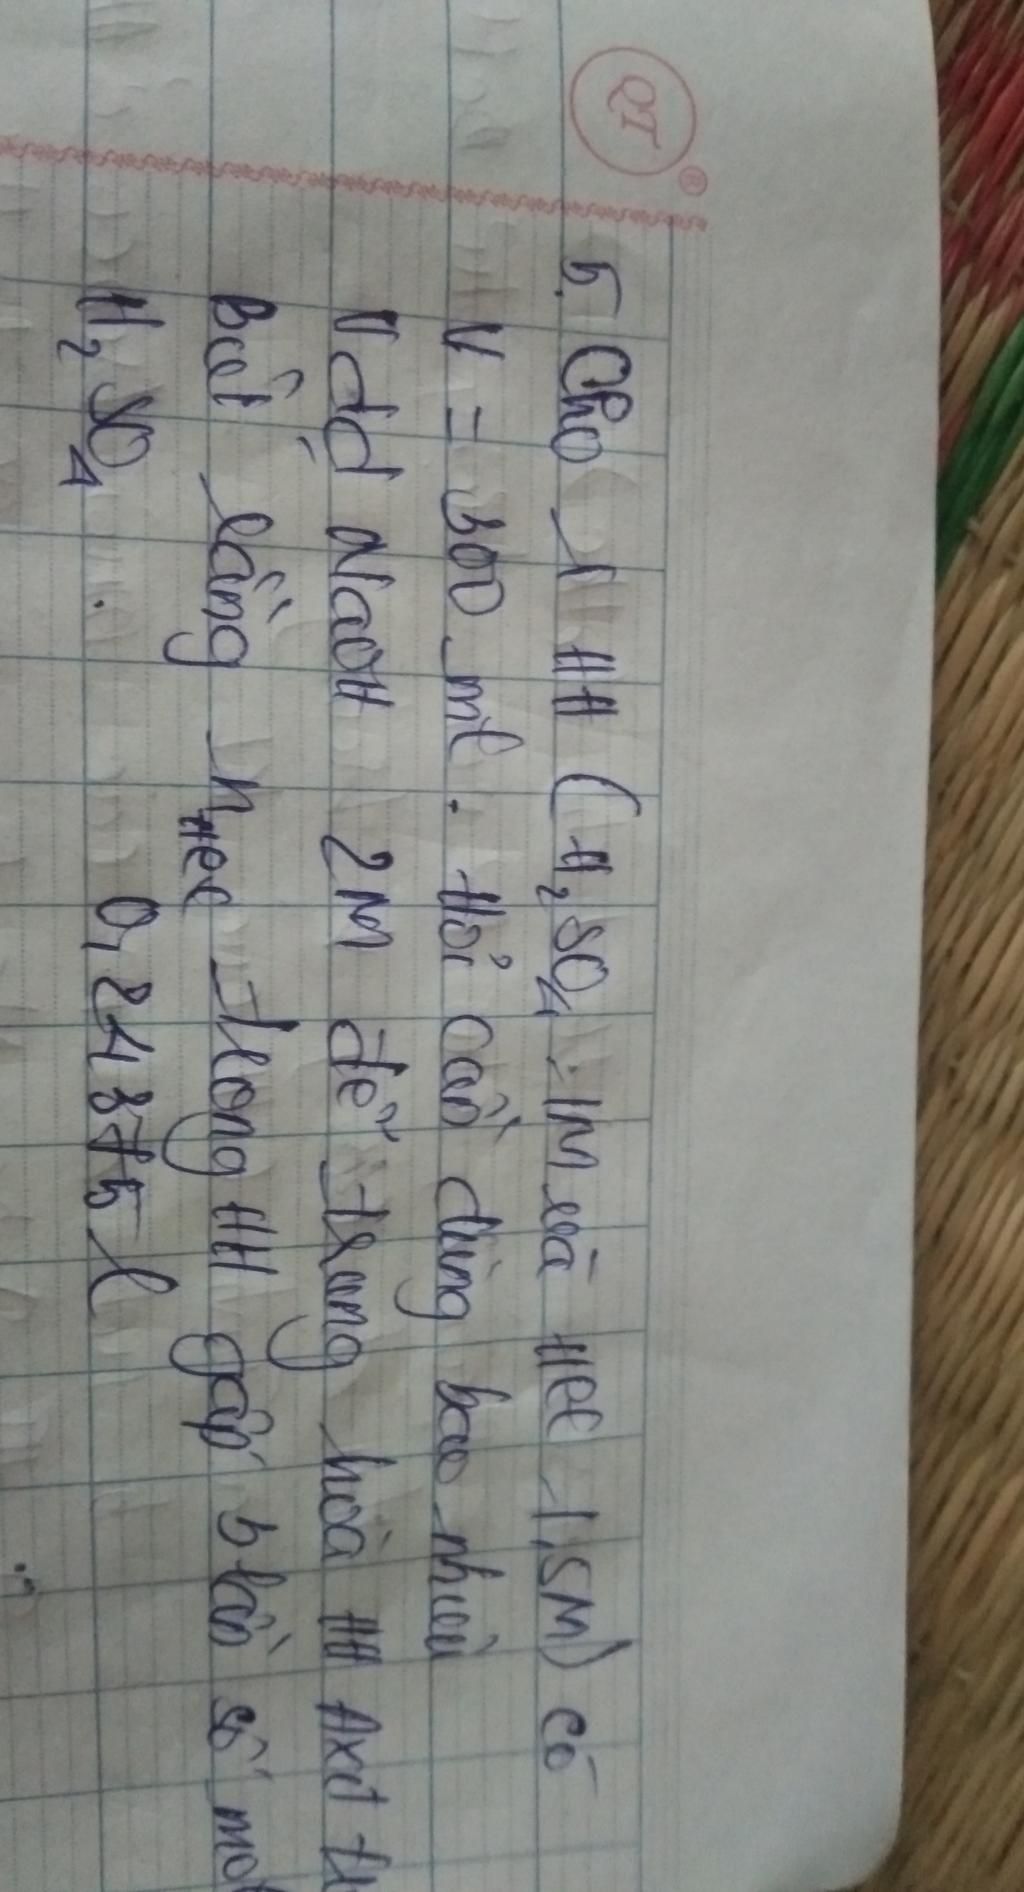 QT ®
5. Cho 1 HH (H₂SO₄ : 1M và HCl 1,5M) có
V = 300 ml. Hỏi cần dùng bao nhiêu
V dd NaOH 2M để trung hoà HH Axit
Biết rằng nHCl trong HH gấp 3 lần số mol
H₂SO₄. 0,24375 l